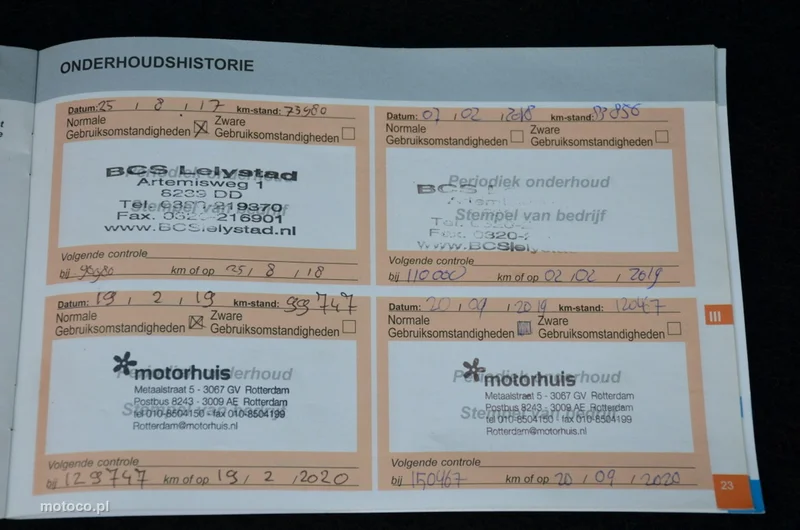 ONDERHOUDSHISTORIE
Datum: 25 / 8 / 17 km-stand: 73980
Normale Gebruiksomstandigheden
Zware Gebruiksomstandigheden
Periodiek onderhoud
Stempel van bedrijf
BCS Lelystad
Artemisweg 1
8239 DD
Tel. 0320-219370
Fax. 0320-216901
www.BCSlelystad.nl
Volgende controle
bij km of op 25 / 8 / 18
Datum: 07 / 02 / 2018 km-stand: 83856
Normale Gebruiksomstandigheden
Zware Gebruiksomstandigheden
Periodiek onderhoud
Stempel van bedrijf
BCS
0320-
www.BCSlelystad
Volgende controle
bij 110000 km of op 02 / 02 / 2019
Datum: 19 / 2 / 19 km-stand: 99747
Normale Gebruiksomstandigheden
Zware Gebruiksomstandigheden
Periodiek onderhoud
Stempel van bedrijf
motorhuis
Metaalstraat 5 - 3067 GV Rotterdam
Postbus 8243 - 3009 AE Rotterdam
tel 010-8504150 - fax 010-8504199
Rotterdam@motorhuis.nl
Volgende controle
bij 129747 km of op 19 / 2 / 2020
Datum: 20 / 09 / 2019 km-stand:
Normale Gebruiksomstandigheden
Zware Gebruiksomstandigheden
Periodiek onderhoud
Stempel van bedrijf
motorhuis
Metaalstraat 5 - 3067 GV Rotterdam
Postbus 8243 - 3009 AE Rotterdam
tel 010-8504150 - fax 010-8504199
Rotterdam@motorhuis.nl
Volgende controle
bij 150467 km of op 20 / 09 / 2020
III
23
motoco.pl